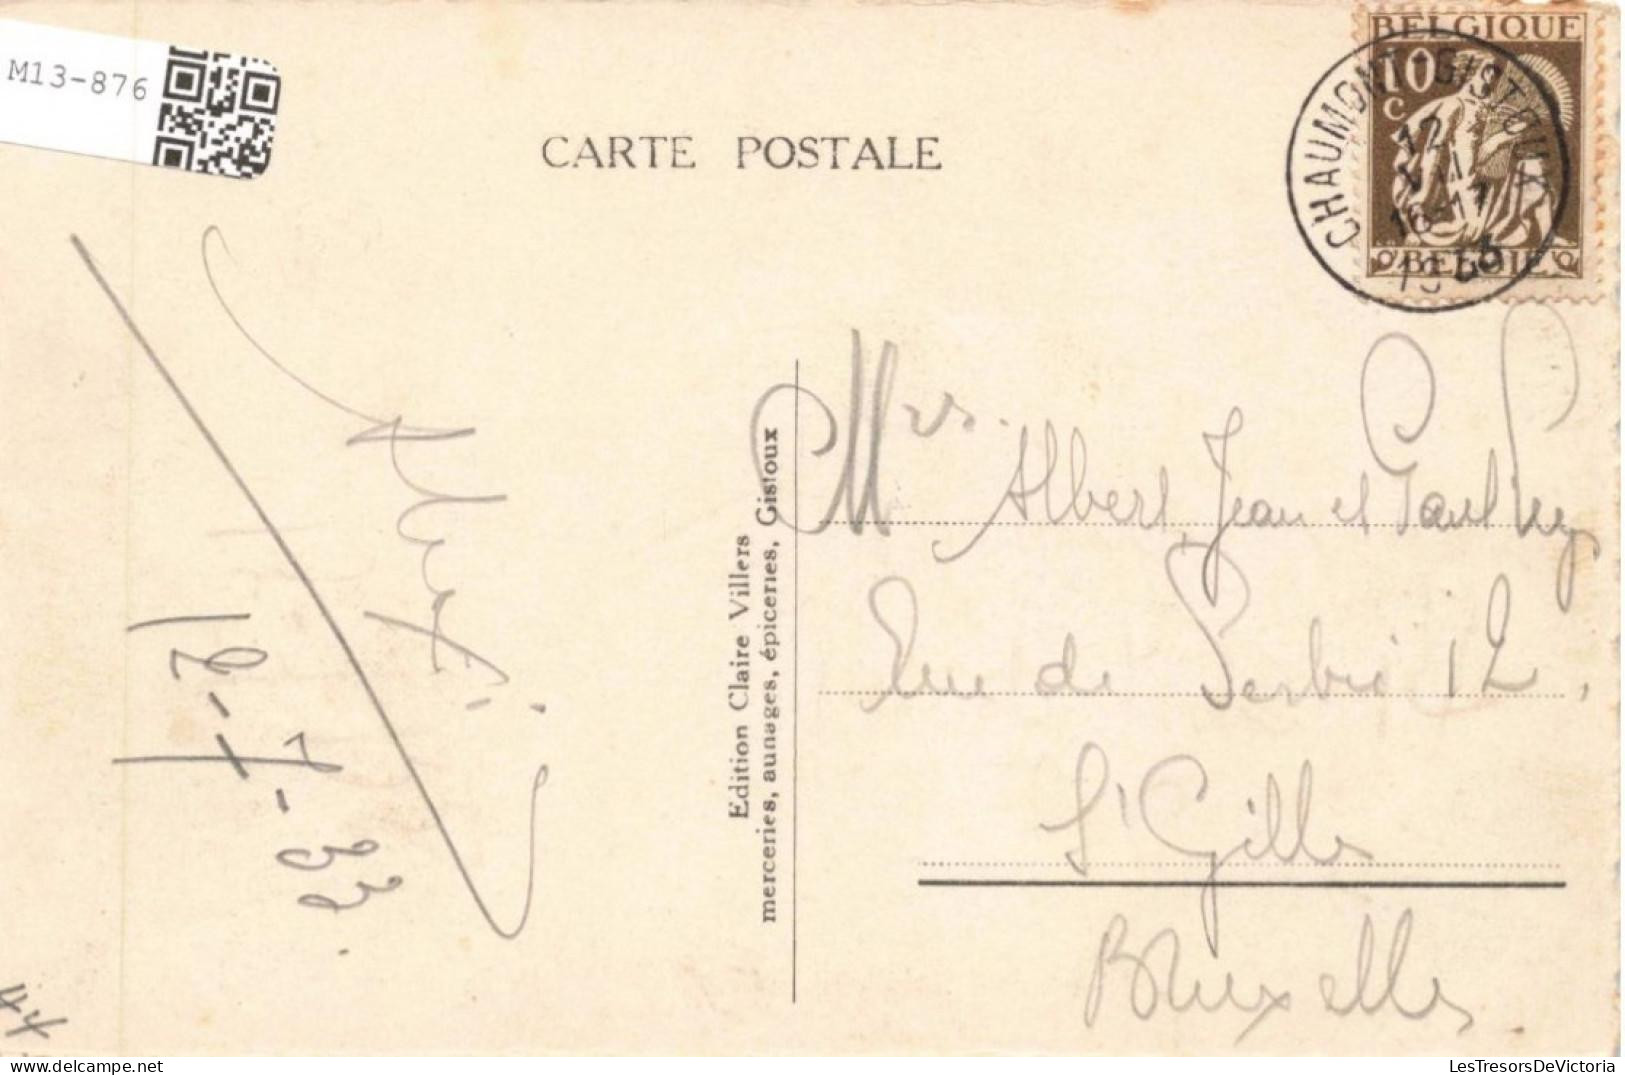 M13-876
CARTE POSTALE
BELGIQUE
10
C
BELGIË
CHAUMONT-GISTOUX
12
VII
16-17
1933
12-7-33.
Edition Claire Villers
merceries, aunages, épiceries, Gistoux
Mrs. Albert, Jean et Paul
Rue de Serbie 12,
St Gilles
Bruxelles
44
LesTresorsDeVictoria